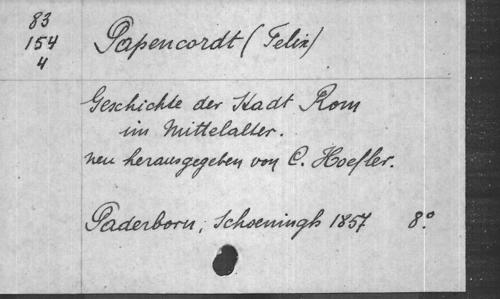 83
154
4
Papencordt (Felix)
Geschichte der Stadt Rom
im Mittelalter.
neu herausgegeben von C. Hoefler.
Paderborn, Schoeningh 1857 8°